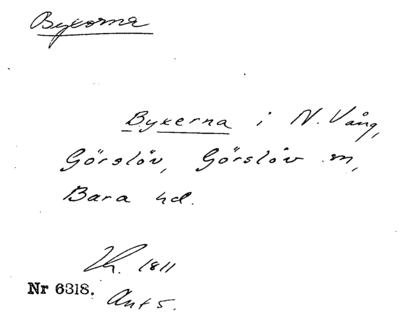 Bykorna
Bykerna i N. Vång,
Görslöv, Görslöv sn,
Bara hd.
1811
Nr 6318.
Ant 5.